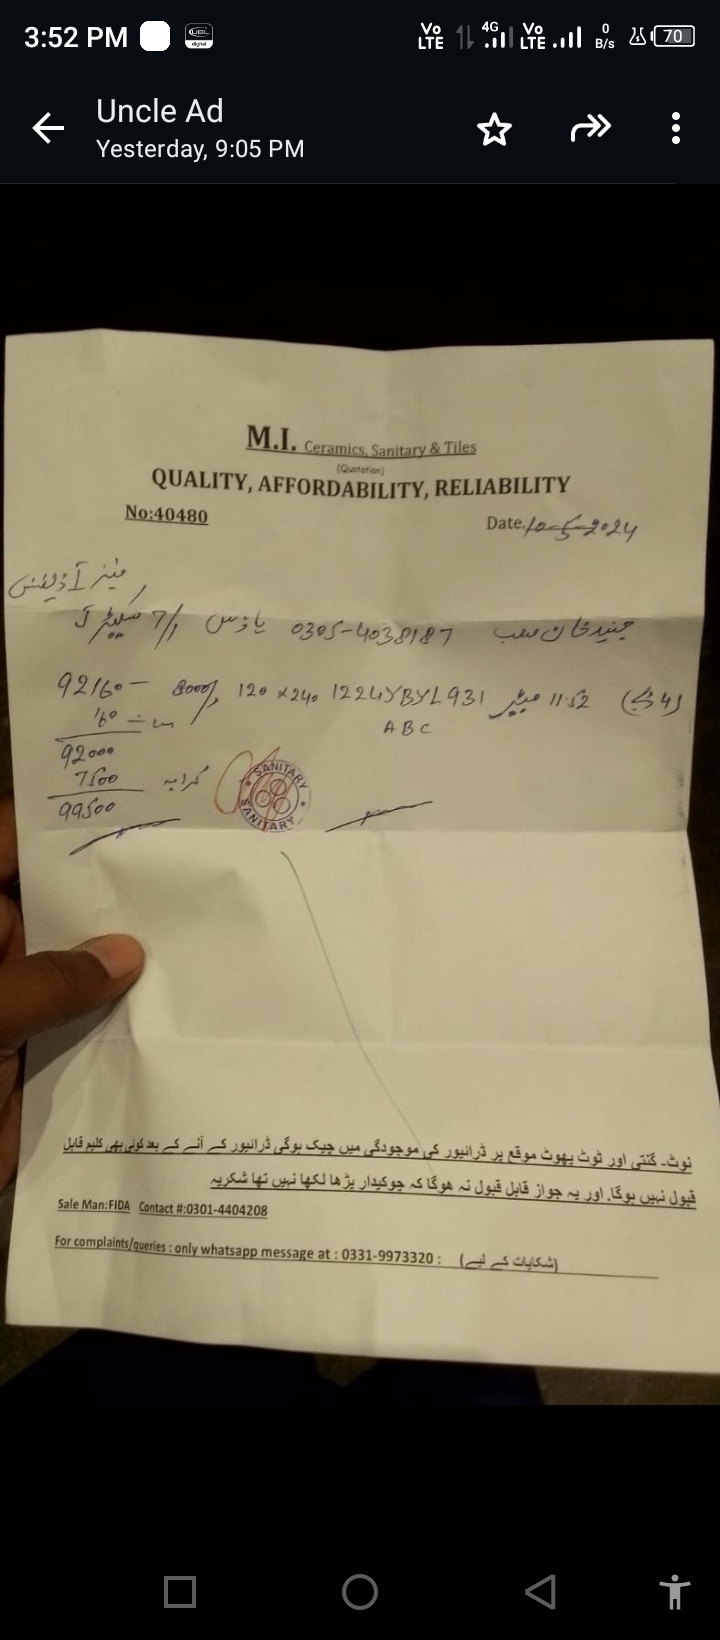 3:52 PM UBL digital Vo LTE 4G Vo LTE 0 B/s 70
Uncle Ad
Yesterday, 9:05 PM
M.I. Ceramics, Sanitary & Tiles
(Quotation)
QUALITY, AFFORDABILITY, RELIABILITY
No:40480
Date. 10-5-2024
جنید خان صاحب 0305-4038187 ہاؤس 7/1
(4 ڈبے) 11.52 میٹر 1224YBYL931 120 x 240 8000/ 92160 —
ABC
160
92000
کرایہ 7500
99500
SANITARY
SANITARY
نوٹ۔ گنتی اور ٹوٹ پھوٹ موقع پر ڈرائیور کی موجودگی میں چیک ہوگی ڈرائیور کے آنے کے بعد کوئی بھی کلیم قابل
قبول نہیں ہوگا. اور یہ جواز قابل قبول نہ ھوگا کہ چوکیدار پڑھا لکھا نہیں تھا شکریہ
Sale Man:FIDA Contact #:0301-4404208
For complaints/queries : only whatsapp message at : 0331-9973320 : (شکایات کے لیے)